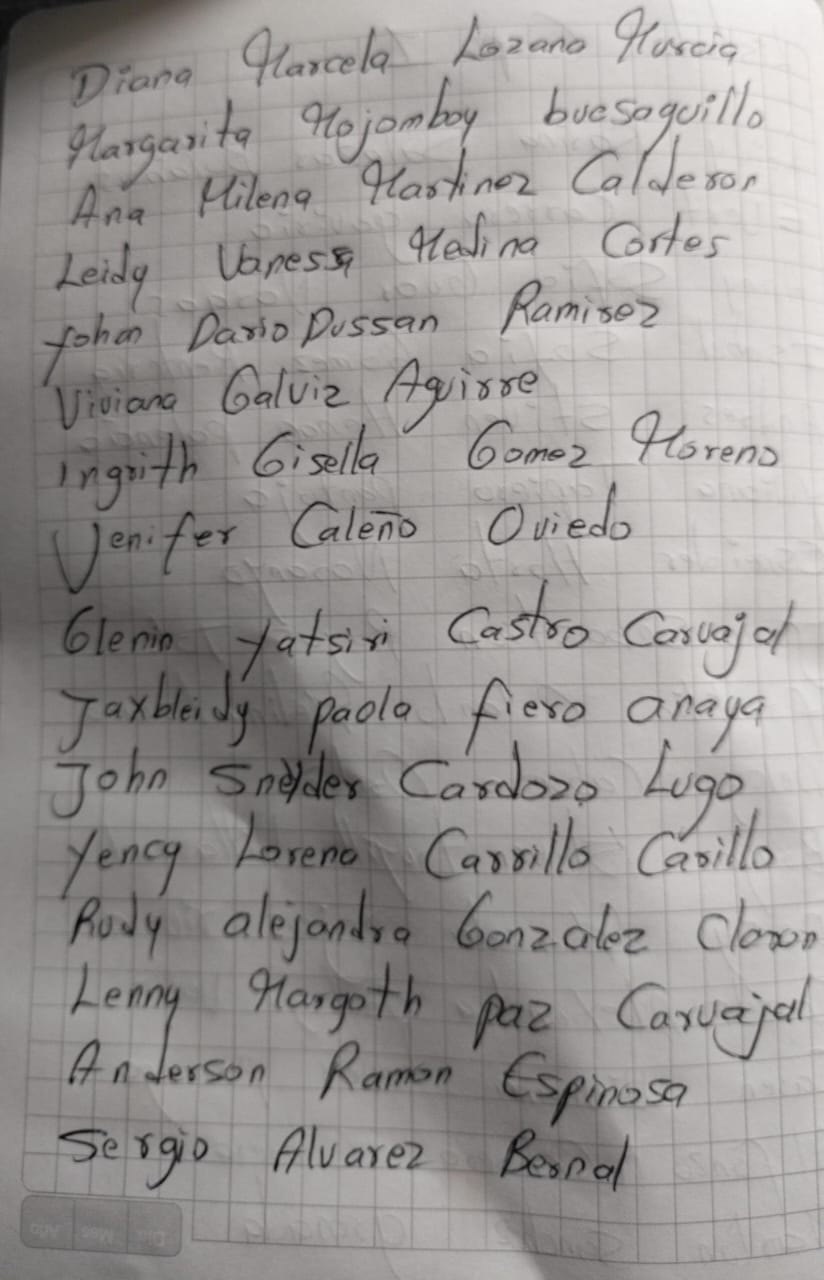 Diana Marcela Lozano Murcia
Margarita Mojomboy buesaquillo
Ana Milena Martinez Calderon
Leidy Vanessa Medina Cortes
Yohan Dario Dussan Ramirez
Viviana Galviz Aguirre
Ingrith Gisella Gomez Moreno
Yenifer Caleño Oviedo
Glenin Yatsiri Castro Carvajal
Jaxbleidy paola fiero anaya
John Sneyder Cardozo Lugo
Yency Lorena Carrillo Carillo
Rudy alejandra Gonzalez Claron
Lenny Margoth paz Carvajal
Anderson Ramon Espinosa
Sergio Alvarez Bernal